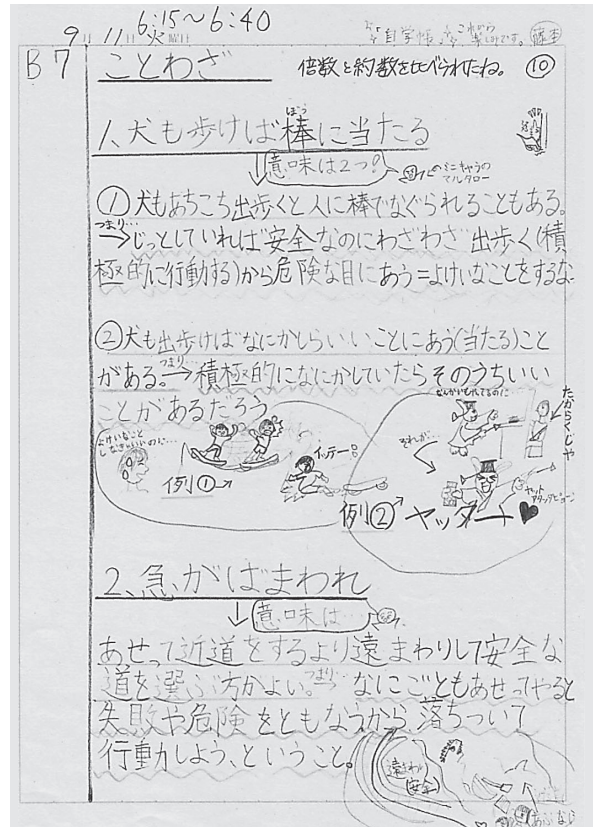 6:15～6:40
9 11 火
「自学帳」 これから 楽しみです。
B7 ことわざ 倍数と約数を比べられたね。 ⑩
1、犬も歩けば棒に当たる
ぼう
意味は2つ!
ミニキャラの
マルタロー
①犬もあちこち出歩くと人に棒でなぐられることもある。
つまり…
→じっとしていれば安全なのにわざわざ出歩く(積
極的に行動する)から危険な目にあう=よけいなことをするな
②犬も出歩けばなにかしらいいことにあう(当たる)こと
がある。つまり…→積極的になにかしていたらそのうちいい
ことがあるだろう
よけいなこと
しなきゃいいのに…
例①→
イッテー
なんかいもやってるのに…
それが…
たからくじや
例② ヤッター♥
2、急がばまわれ
意味は…
あせって近道をするより遠まわりして安全な
道を選ぶ方がよい。つまり… なにごともあせってやると
失敗や危険をともなうから落ちついて
行動しよう、ということ。
遠まわり
(安全)